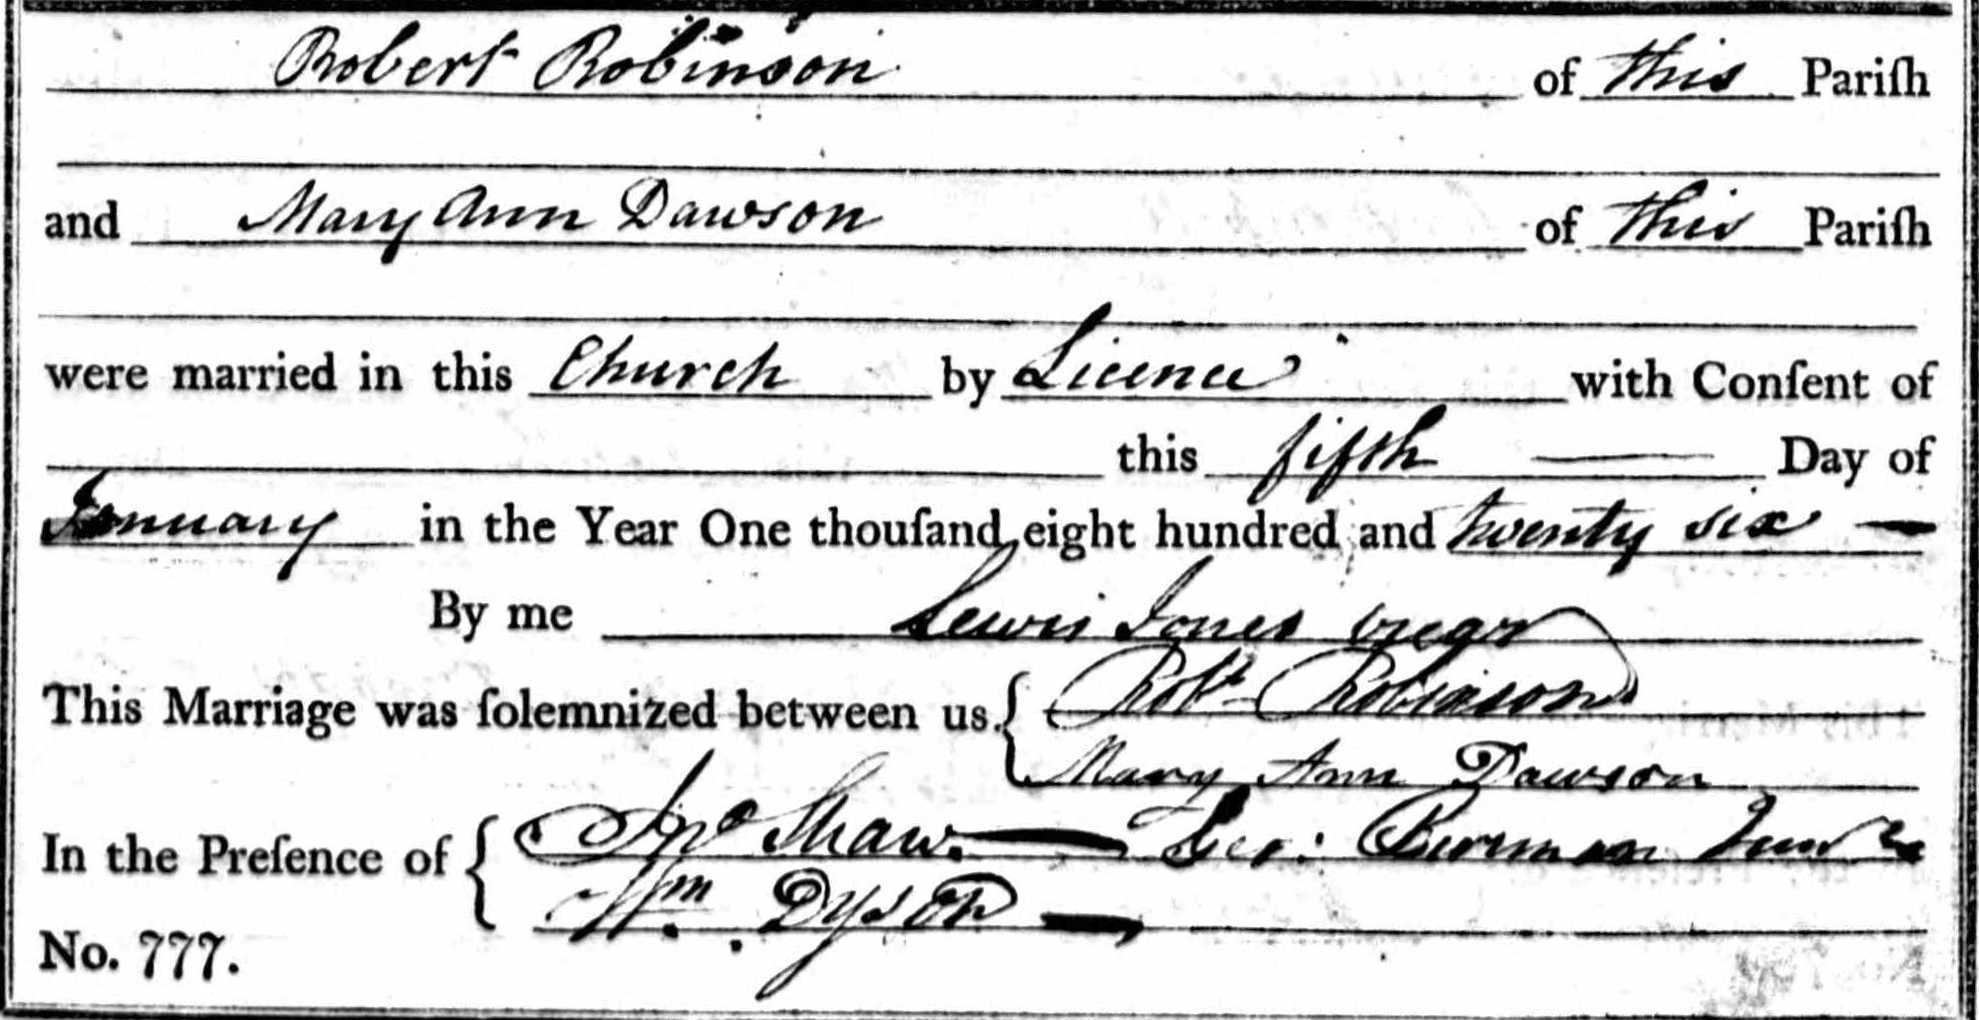 Robert Robinson of this Pariſh
and Mary Ann Dawson of this Pariſh
were married in this Church by Licence with Conſent of
this fifth Day of
January in the Year One thouſand eight hundred and twenty six
By me Lewis Jones vicar
This Marriage was ſolemnized between us. Robt Robinson
Mary Ann Dawson
In the Preſence of Jno Shaw. Geo: Junr
Wm. Dyson
No. 777.